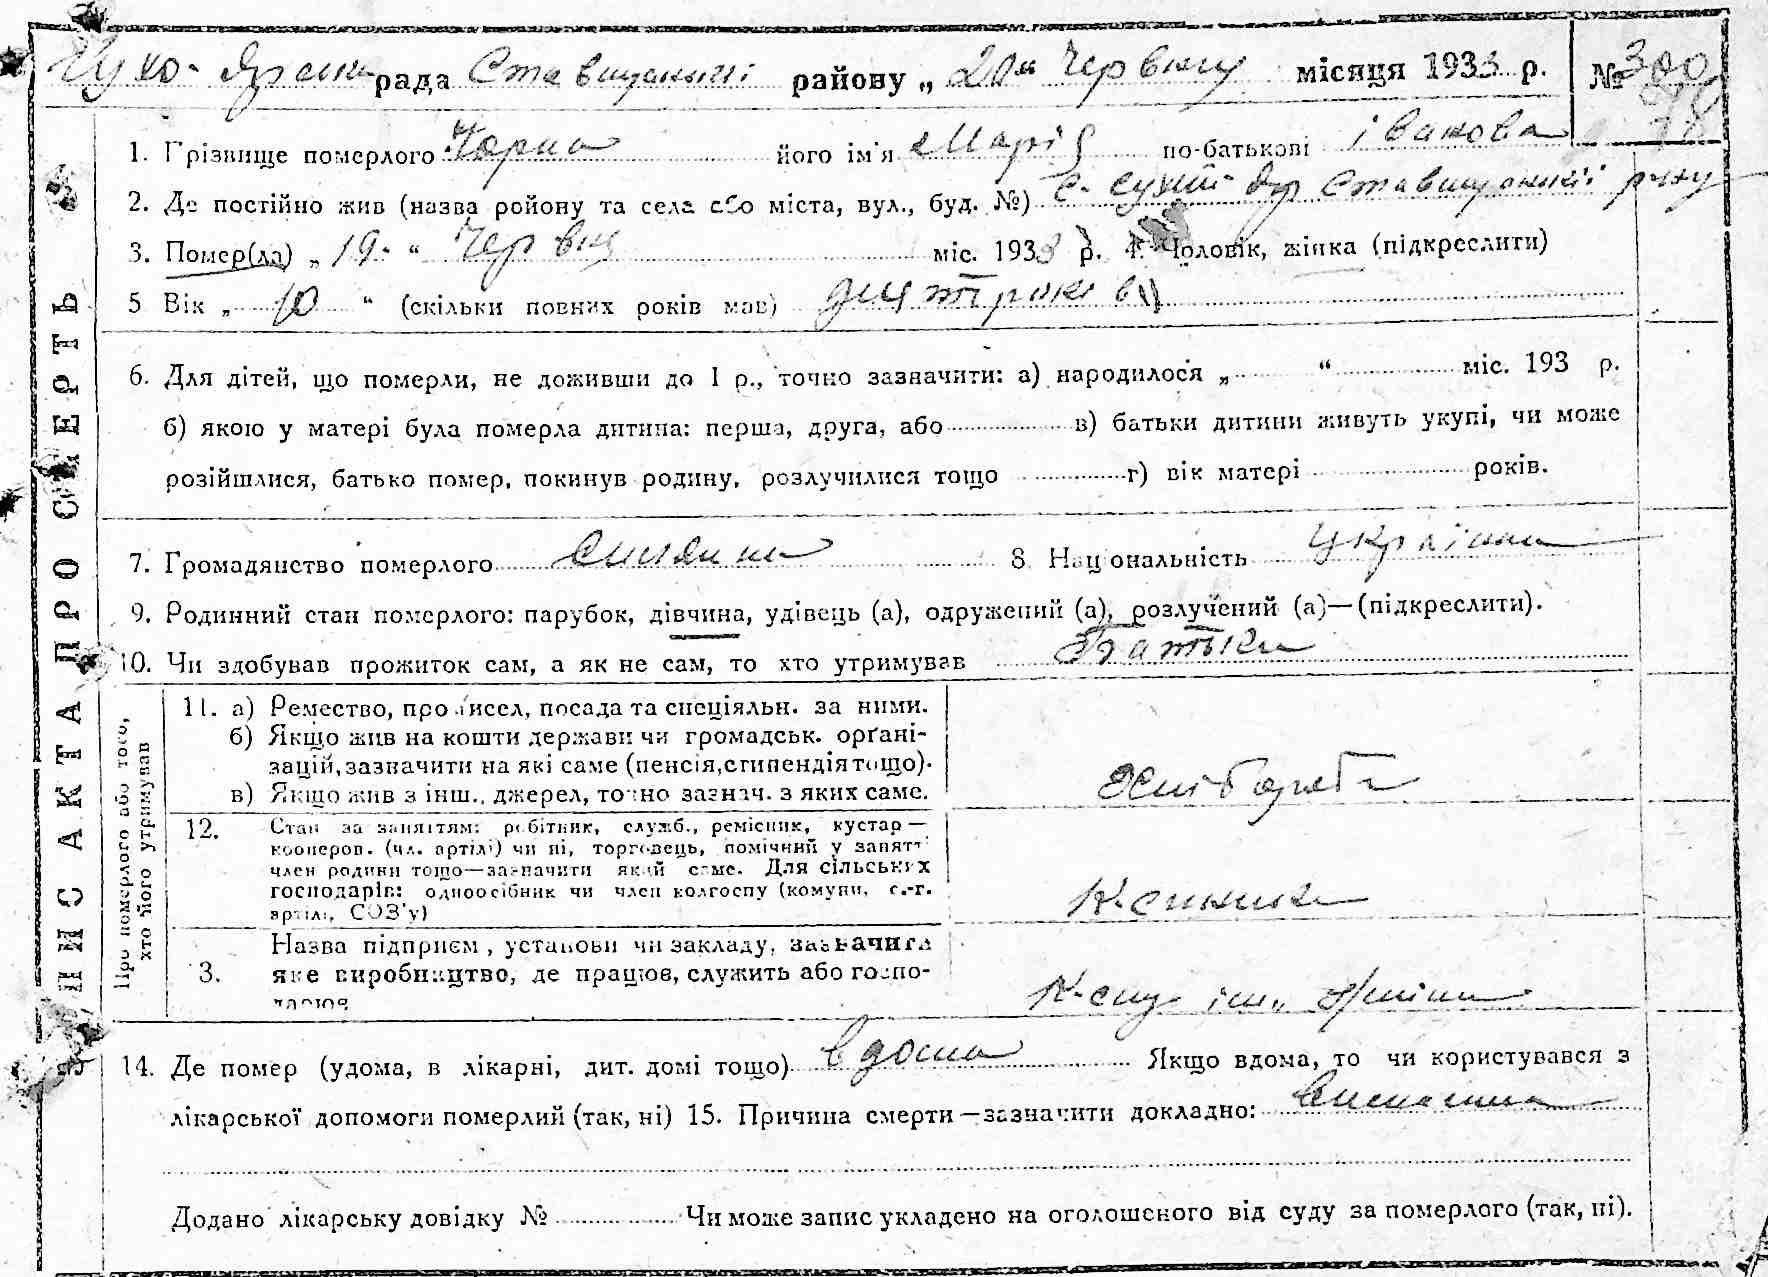 Сухо-Ярська рада Ставищанський району „20“ Червня місяця 1933 р. № 300
78
ЗАПИС АКТА ПРО СМЕРТЬ
1. Прізвище померлого Чорна його ім'я Марія по-батькові Іванова
2. Де постійно жив (назва ройону та села або міста, вул., буд. №) с. Сухий Яр Ставищанський р-ну
3. Помер(ла) „19“ Червня міс. 1933 р. 4. Чоловік, жінка (підкреслити)
5 Вік „10“ (скільки повних років мав) років
6. Для дітей, що померли, не доживши до 1 р., точно зазначити: а) народилося „ “ міс. 193 р.
б) якою у матері була померла дитина: перша, друга, або в) батьки дитини живуть укупі, чи може
розійшлися, батько помер, покинув родину, розлучилися тощо г) вік матері років.
7. Громадянство померлого селянка 8 Національність Українка
9. Родинний стан померлого: парубок, дівчина, удівець (а), одружений (а), розлучений (а)—(підкреслити).
10. Чи здобував прожиток сам, а як не сам, то хто утримував Батьки
Про померлого або того, хто його утримував
11. а) Ремество, промисел, посада та спеціяльн. за ними.
б) Якщо жив на кошти держави чи громадськ. орґані-
зацій, зазначити на які саме (пенсія, стипендія тощо).
в) Якщо жив з інш., джерел, точно зазнач. з яких саме.
Хлібороба
12. Стан за заняттям: робітник, служб., ремісник, кустар—
кооперов. (чл. артілі) чи ні, торговець, помічний у занятт
член родини тощо—зазначити який саме. Для сільських
господарів: одноосібник чи член колгоспу (комуни, с.-г.
артілі, СОЗ'у)
3. Назва підприєм, установи чи закладу, зазначити
яке виробництво, де працюв, служить або госпо-
дарює
К-сп ім.
14. Де помер (удома, в лікарні, дит. домі тощо) вдома Якщо вдома, то чи користувався з
лікарської допомоги померлий (так, ні) 15. Причина смерти—зазначити докладно:
Додано лікарську довідку № Чи може запис укладено на оголошеного від суду за померлого (так, ні).